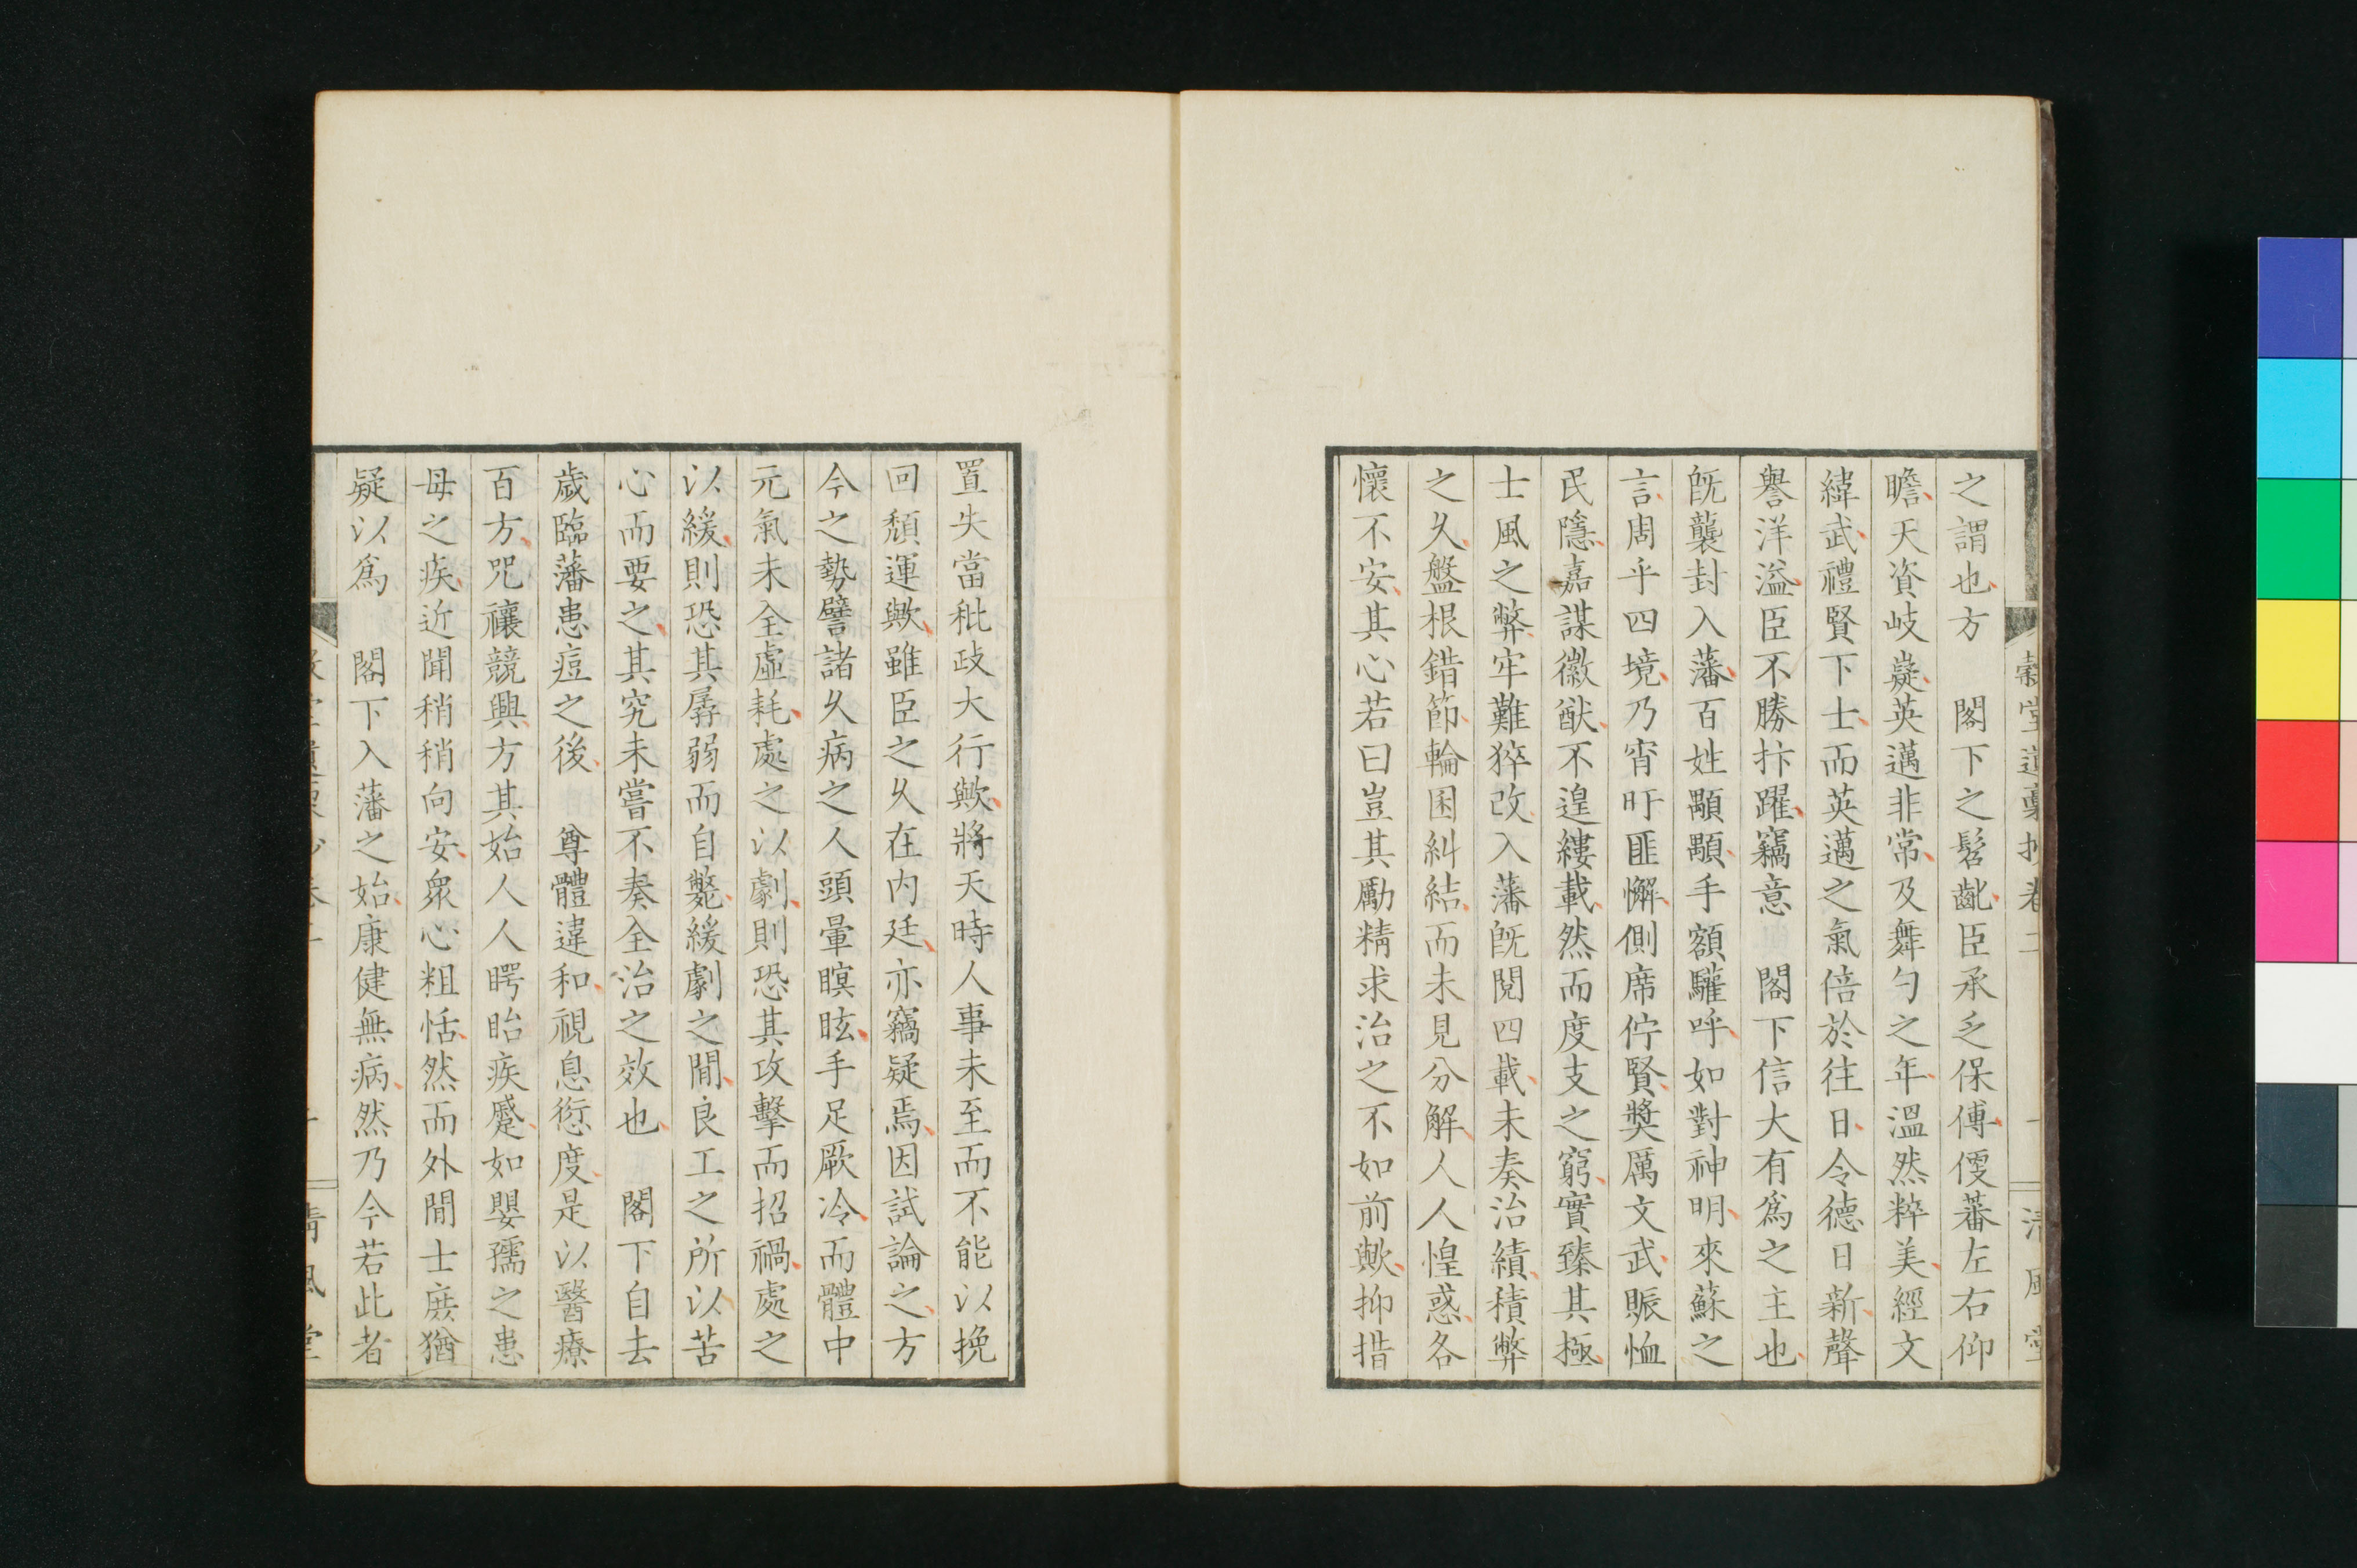 穀堂遺稾抄卷二 一 清風堂
之謂也方 閣下之髫齔臣承乏保傅僾蕃左右仰
瞻天資岐嶷英邁非常及舞勺之年溫然粹美經文
緯武禮賢下士而英邁之氣倍於往日令德日新聲
譽洋溢臣不勝抃躍竊意 閣下信大有爲之主也
旣襲封入藩百姓顒顒手額驩呼如對神明來蘇之
言周乎四境乃宵旰匪懈側席佇賢奬厲文武賑恤
民隱嘉謀徽猷不遑縷載然而度支之窮實臻其極
士風之弊牢難猝改入藩旣閱四載未奏治績積弊
之久盤根錯節輪囷糾結而未見分解人人惶惑各
懷不安其心若曰豈其勵精求治之不如前歟抑措
置失當秕政大行歟將天時人事未至而不能以挽
回頹運歟雖臣之久在內廷亦竊疑焉因試論之方
今之勢譬諸久病之人頭暈瞑眩手足厥冷而體中
元氣未全虛耗處之以劇則恐其攻擊而招禍處之
以緩則恐其孱弱而自斃緩劇之間良工之所以苦
心而要之其究未嘗不奏全治之效也 閣下自去
歲臨藩患痘之後 尊體違和視息愆度是以醫療
百方咒禳競興方其始人人愕眙疾蹙如嬰孺之患
母之疾近聞稍稍向安衆心粗恬然而外間士庶猶
疑以爲 閣下入藩之始康健無病然乃今若此者